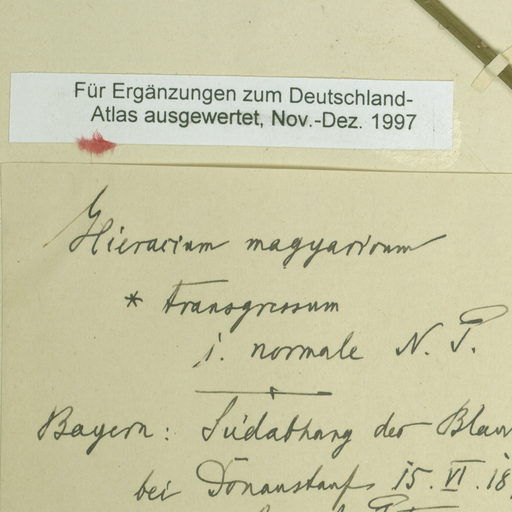 Für Ergänzungen zum Deutschland-
Atlas ausgewertet, Nov.-Dez. 1997
Hieracium magyaricum
* transgressum
i. normale N. P.
Bayern: Südabhang der
bei Donaustauf 15. VI. 18